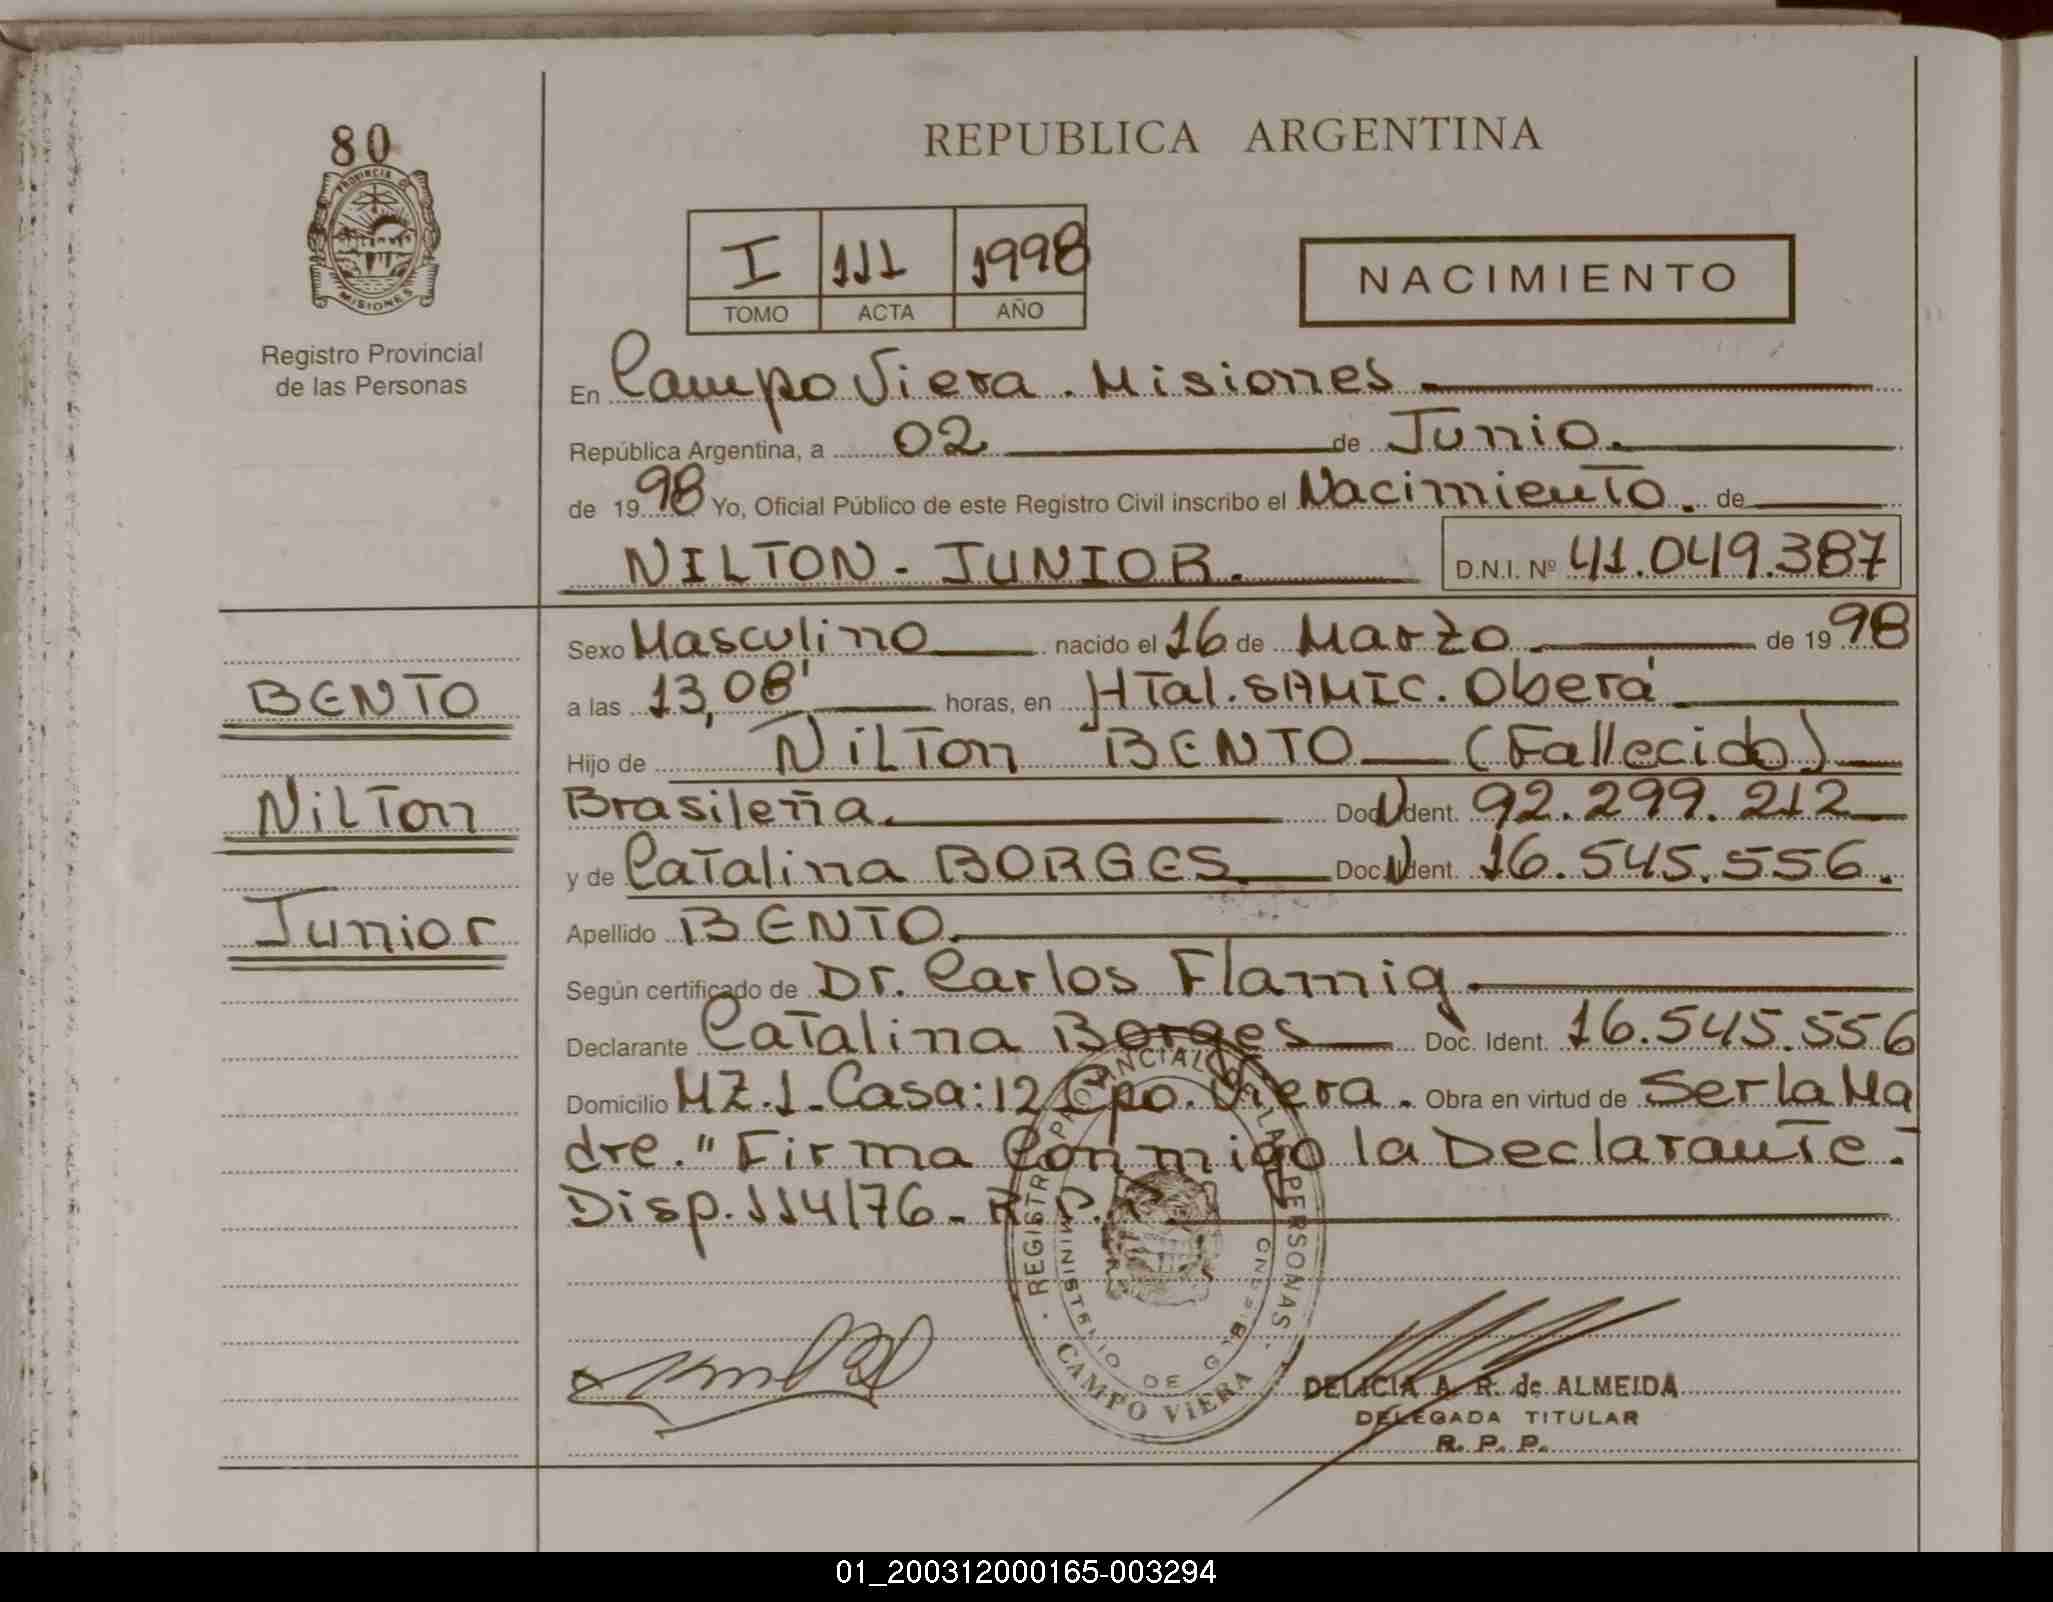 80
PROVINCIA
MISIONES
Registro Provincial
de las Personas
REPUBLICA ARGENTINA
I 111 1998
TOMO ACTA AÑO
NACIMIENTO
En Campo Viera. Misiones
República Argentina, a 02 de Junio.
de 1998 Yo, Oficial Público de este Registro Civil inscribo el Nacimiento. de
NILTON - JUNIOR. D.N.I. Nº 41.049.387
BENTO
Nilton
Junior
Sexo Masculino nacido el 16 de Marzo de 1998
a las 13,08' horas, en HTal. SAMIC. Oberá
Hijo de Nilton BENTO (Fallecido)
Brasileña. Doc. Ident. 92.299.212
y de Catalina BORGES Doc. Ident. 16.545.556.
Apellido BENTO.
Según certificado de Dr. Carlos Flamig.
Declarante Catalina Borges Doc. Ident. 16.545.556
Domicilio MZ.1-Casa:12 Cpo. Viera. Obra en virtud de Ser la Ma
dre. "Firma Conmigo la Declarante.-
Disp. 114/76- R.P.
REGISTRO PROVINCIAL DE LAS PERSONAS
MINISTERIO DE
CAMPO VIERA
DELICIA A. R. de ALMEIDA
DELEGADA TITULAR
R. P. P.
01_200312000165-003294